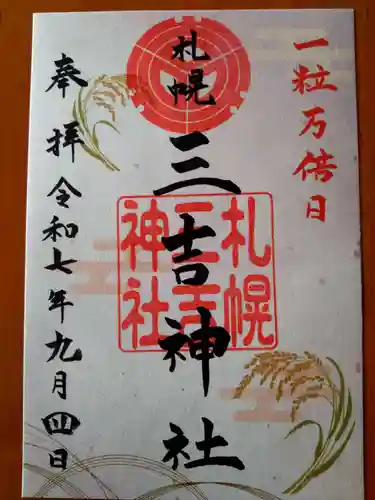 一粒万倍日
札幌
三吉神社
札幌
三吉
神社
奉拝
令和七年九月四日